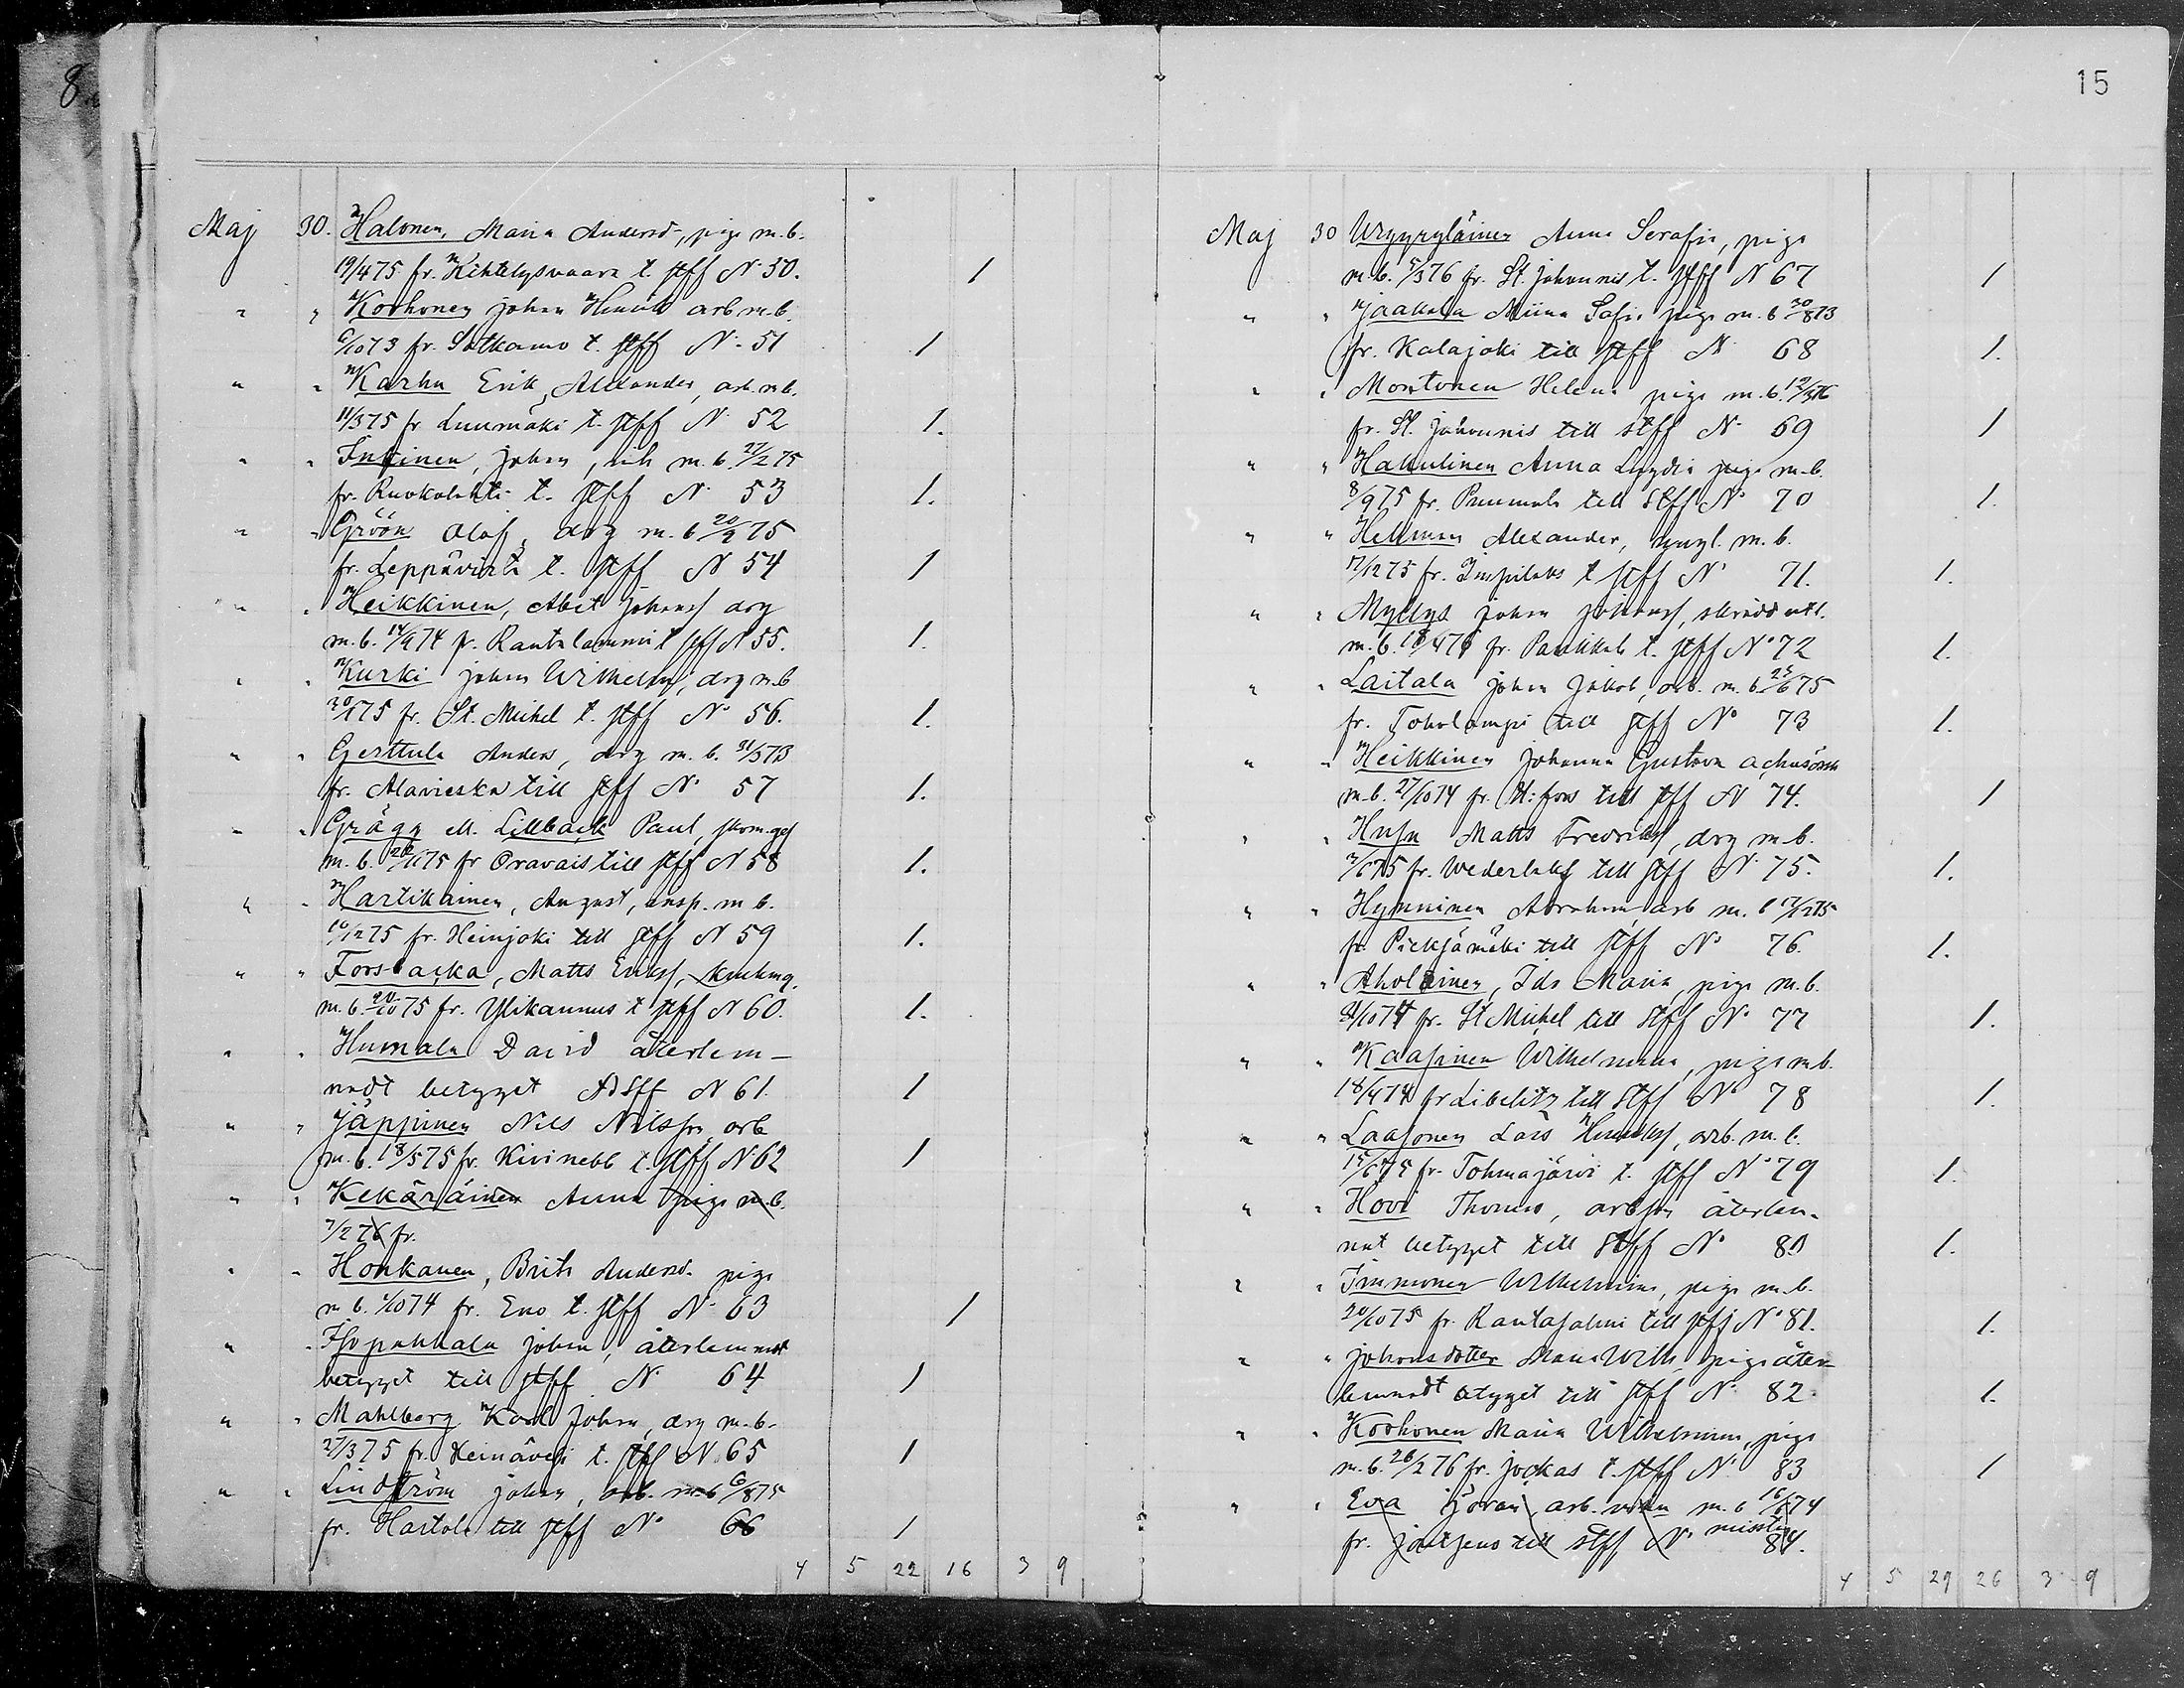 8
15
Maj 30. Halonen, Maria Andersd., piga m.b.
19/4 75 fr. Kihtelysvaara t. stff N. 50. 1
" " Korhonen Johan Henrik arb m.b.
6/10 73 fr. Sotkamo t. stff N. 51 1
" " Karhu Erik Alexander, arb. m.b.
11/3 75 fr Luumäki t. stff N 52 1.
" " Inkinen, Johan, m.b. 27/2 75
fr. Ruokolahti t. stff N. 53 1.
" " Gröön Olof, drg m.b 20/9 75
fr. Leppävirta t. stff N 54 1
" " Heikkinen, Abel Johanss drg
m.b. 14/9 74 fr. Rautalammi t stff N 55. 1.
" " Kurki Johan Wilhelm, drg m.b
30/1 75 fr. St. Michel t. stff No 56. 1.
" " Gerttula Anders, drg m.b. 31/3 73
fr. Alavieska till stff No 57 1.
" " Grägg ell. Lillback Paul, skom.ges
m.b. 22/1 75 fr Oravais till stff N 58 1.
" " Hartikainen, August, insp. m b.
10/12 75 fr. Heinjoki till stff N 59 1.
" " Forsbacka, Matts Erikss,
m.b. 20/10 75 fr. Ylikannus t stff N 60. 1.
" " Humala David återlem-
nadt betyget stff N 61. 1
" " Jäppinen Nils Nilsson arb
m.b. 18/5 75 fr. Kivinebb t. stff No 62 1
" " Kekäräinen Anna piga m.b.
7/2 76 fr.
" " Honkanen, Brita Andersd. piga
m b. 1/10 74 fr. Eno t. stff No 63 1
" " Isopahkala Johan, återlemnat
betyget till stff N. 64 1
" " Mahlberg Karl Johan, drg m.b.
27/3 75 fr. Heinävesi t. stff N 65 1
" " Lindström Johan, arb. m.b 6/8 75
fr. Hartola till stff No 66 1
4 5 22 16 3 9
Maj 30 Wryyryläinen Anna Serafia, piga
m.b. 5/3 76 fr. St. Johannis t. stff N 67 1
" " Jaakola Miina Sofia piga m.b 30/8 73
fr. Kalajoki till stff N 68 1.
" " Montonen Helena piga m.b. 12/3 76
fr. St. Johannis till stff N. 69 1
" " Hakulinen Anna Lydia piga m.b.
8/9 75 fr. Puumala till stff No 70 1.
" " Hellman Alexander, yngl. m.b.
17/12 75 fr. Impilaks t stff No 71. 1.
" " Myllys Johan Johanss,
m.b. 18/4 76 fr. Parikkala t. stff No 72 1.
" " Laitala Johan Jakob, arb. m.b. 25/6 75
fr. Toholampi till stff No 73 1.
" " Heikkinen Johanna Gustava
m.b. 27/10 74 fr. H:fors till stff N 74. 1
" " Husu Matts Fredrikss, drg m.b.
fr. Wederlaks till stff N. 75. 1.
" " Hynninen Abraham arb m.b 17/12 75
fr. Pieksämäki till stff No 76. 1.
" " Aholainen, Ida Maria, piga m.b.
fr. St Michel till stff No 77 1.
" " Kaasinen Wilhelmina, piga m.b.
18/4 74 fr Libelitz till stff No 78 1.
" " Laasonen Lars Henrikss, arb. m.b.
15/6 75 fr. Tohmajärvi t. stff No 79 1.
" " Hovi Thomas, arbson återlem-
nat betyget till stff No 80 1.
" " Immonen Wilhelmina, piga m.b.
20/10 75 fr. Rantasalmi till stff No 81. 1.
" " Johansdotter Maria Wilh. piga åter-
lemnadt btyget till stff No 82. 1.
" " Korhonen Maria Wilhelmina, piga
m.b. 26/2 76 fr. Jockas t. stff No 83 1
" " Eva Göran, arb. m.b 16/6 74
fr. till stff No 84.
4 5 29 26 3 9